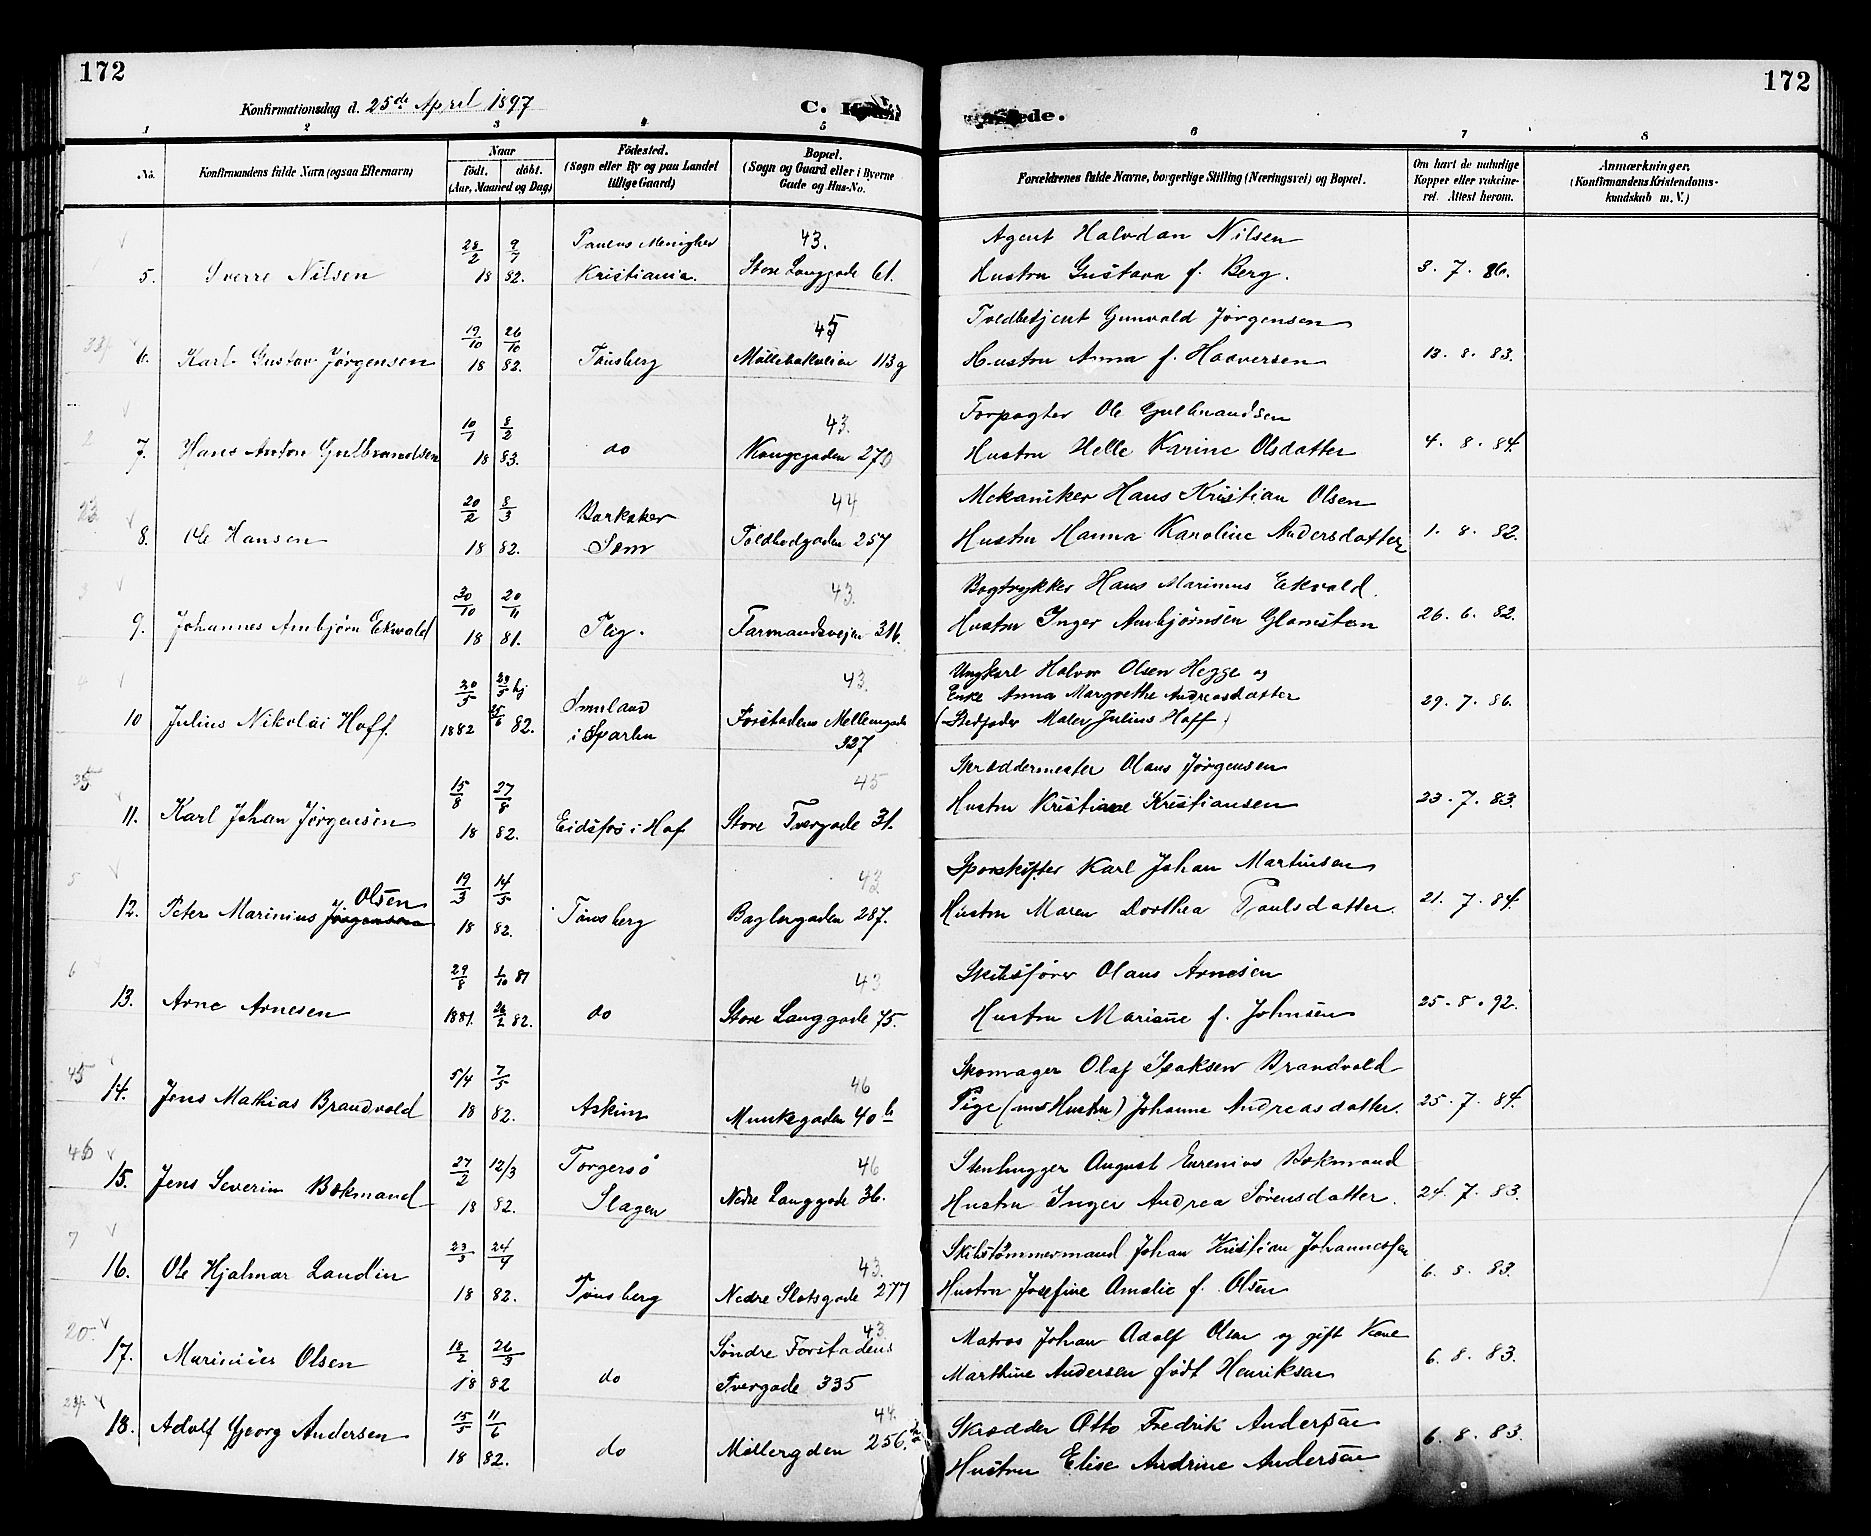 172
172
Konfirmationsdag d. 25de April 1897
C.
1 2 3 4 5 6 7 8
No.
Konfirmandens fulde Navn (ogsaa Efternavn)
Naar
födt. döbt.
(Aar, Maaned og Dag)
Födested.
(Sogn eller By og paa Landet
tillige Gaard)
Bopæl.
(Sogn og Gaard eller i Byerne
Gade og Hus-No.
Forældrenes fulde Navne, borgerlige Stilling (Næringsvei) og Bopæl.
Om havt de naturlige
Kopper eller vakcine-
ret. Attest herom.
Anmærkninger.
(Konfirmandens Kristendoms-
kundskab m. V.)
28/2 9/7 Paulus Menighed 43. Agent Halvdan Nilsen
5. Sverre Nilsen 18 82. Kristiania. Store Langgade 61. Hustru Gustava f. Berg. 3. 7. 86.
19/10 26/10 45 Toldbetjent Gunvald Jørgensen
6. Karl Gustav Jørgensen 18 82. Tønsberg Møllebakveien 113g Hustru Anna f. Haaversen 13. 8. 83.
10/1 8/2 43. Forpagter Ole Gulbrandsen
7. Hans Anton Gulbrandsen 18 83. do Kongegaden 270 Hustru Helle Karine Olsdatter 4. 8. 84.
20/2 8/3 Barkaker 44 Mekaniker Hans Kristian Olsen
8. Ole Hansen 18 82. Sem Toldbodgaden 257 Hustru Hanna Karoline Andersdatter 1. 8. 82.
20/10 20/11 43. Bogtrykker Hans Marinius Ekvold.
9. Johannes Arnbjørn Ekvold 18 81. Farmandsveien 316. Hustru Inger Arnbjørnsen 26. 6. 82.
20/5 hj 43. Ungkarl Halvor Olsen Hegge og
Enke Anna Margrethe Andreasdatter
10 Julius Nikolai Hoff. 1882 25/6 82. Forstadens Mellemgade (Stedfader Maler Julius Hoff) 29. 7. 86.
327
15/8 27/8 45 Skræddermester Olaus Jørgensen
11. Karl Johan Jørgensen 18 82. Eidsfos i Hof Store Tvergade 31. Hustru Kristiane Kristiansen 23. 7. 83.
Olsen 19/3 14/5 43 Sporskifter Karl Johan Martinsen
12. Peter Marinius Jørgensen 18 82. Tønsberg Baglergaden 287. Hustru Maren Dorthea Paulsdatter. 21. 7. 84.
29/8 1/10 81 43 Skibsfører Olaus Arnesen
13. Arne Arnesen 1881. 26/2 82. do Store Langgade 75. Hustru Marine f. Johnsen 25. 8. 92.
5/4 7/5 46 Skomager Olaf Isaksen Brandvold
14. Jens Mathias Brandvold 18 82. Askim Munkegaden 40 b Pige (nu Hustru) Johanne Andreasdatter. 25. 7. 84.
27/2 12/3 Torgersø 46 Stenhugger August Eurenius Bokmand
15. Jens Severin Bokmand 18 82. Slagen Nedre Langgade 36. Hustru Inger Andrea Sørensdatter. 24. 7. 83.
23/3 24/4 43. Skibstømmermand Johan Kristian Johannessen
16. Ole Hjalmar Landin 18 82. Tønsberg Nedre Slotsgade 277 Hustru Josefine Amalie f. Olsen 6. 8. 83.
43.
18/2 26/3 Søndre Forstadens Matros Johan Adolf Olsen og gift Kone
17. Marinius Olsen 18 82 do Tvergade 335 Marthine Andersen født Henriksen 6. 8. 83.
15/5 11/6 44. Skrædder Otto Fredrik Andersen
18. Adolf Georg Andersen 18 82. do Møllergden 256. Hustru Elise Andrine Andersen 6. 8. 83.